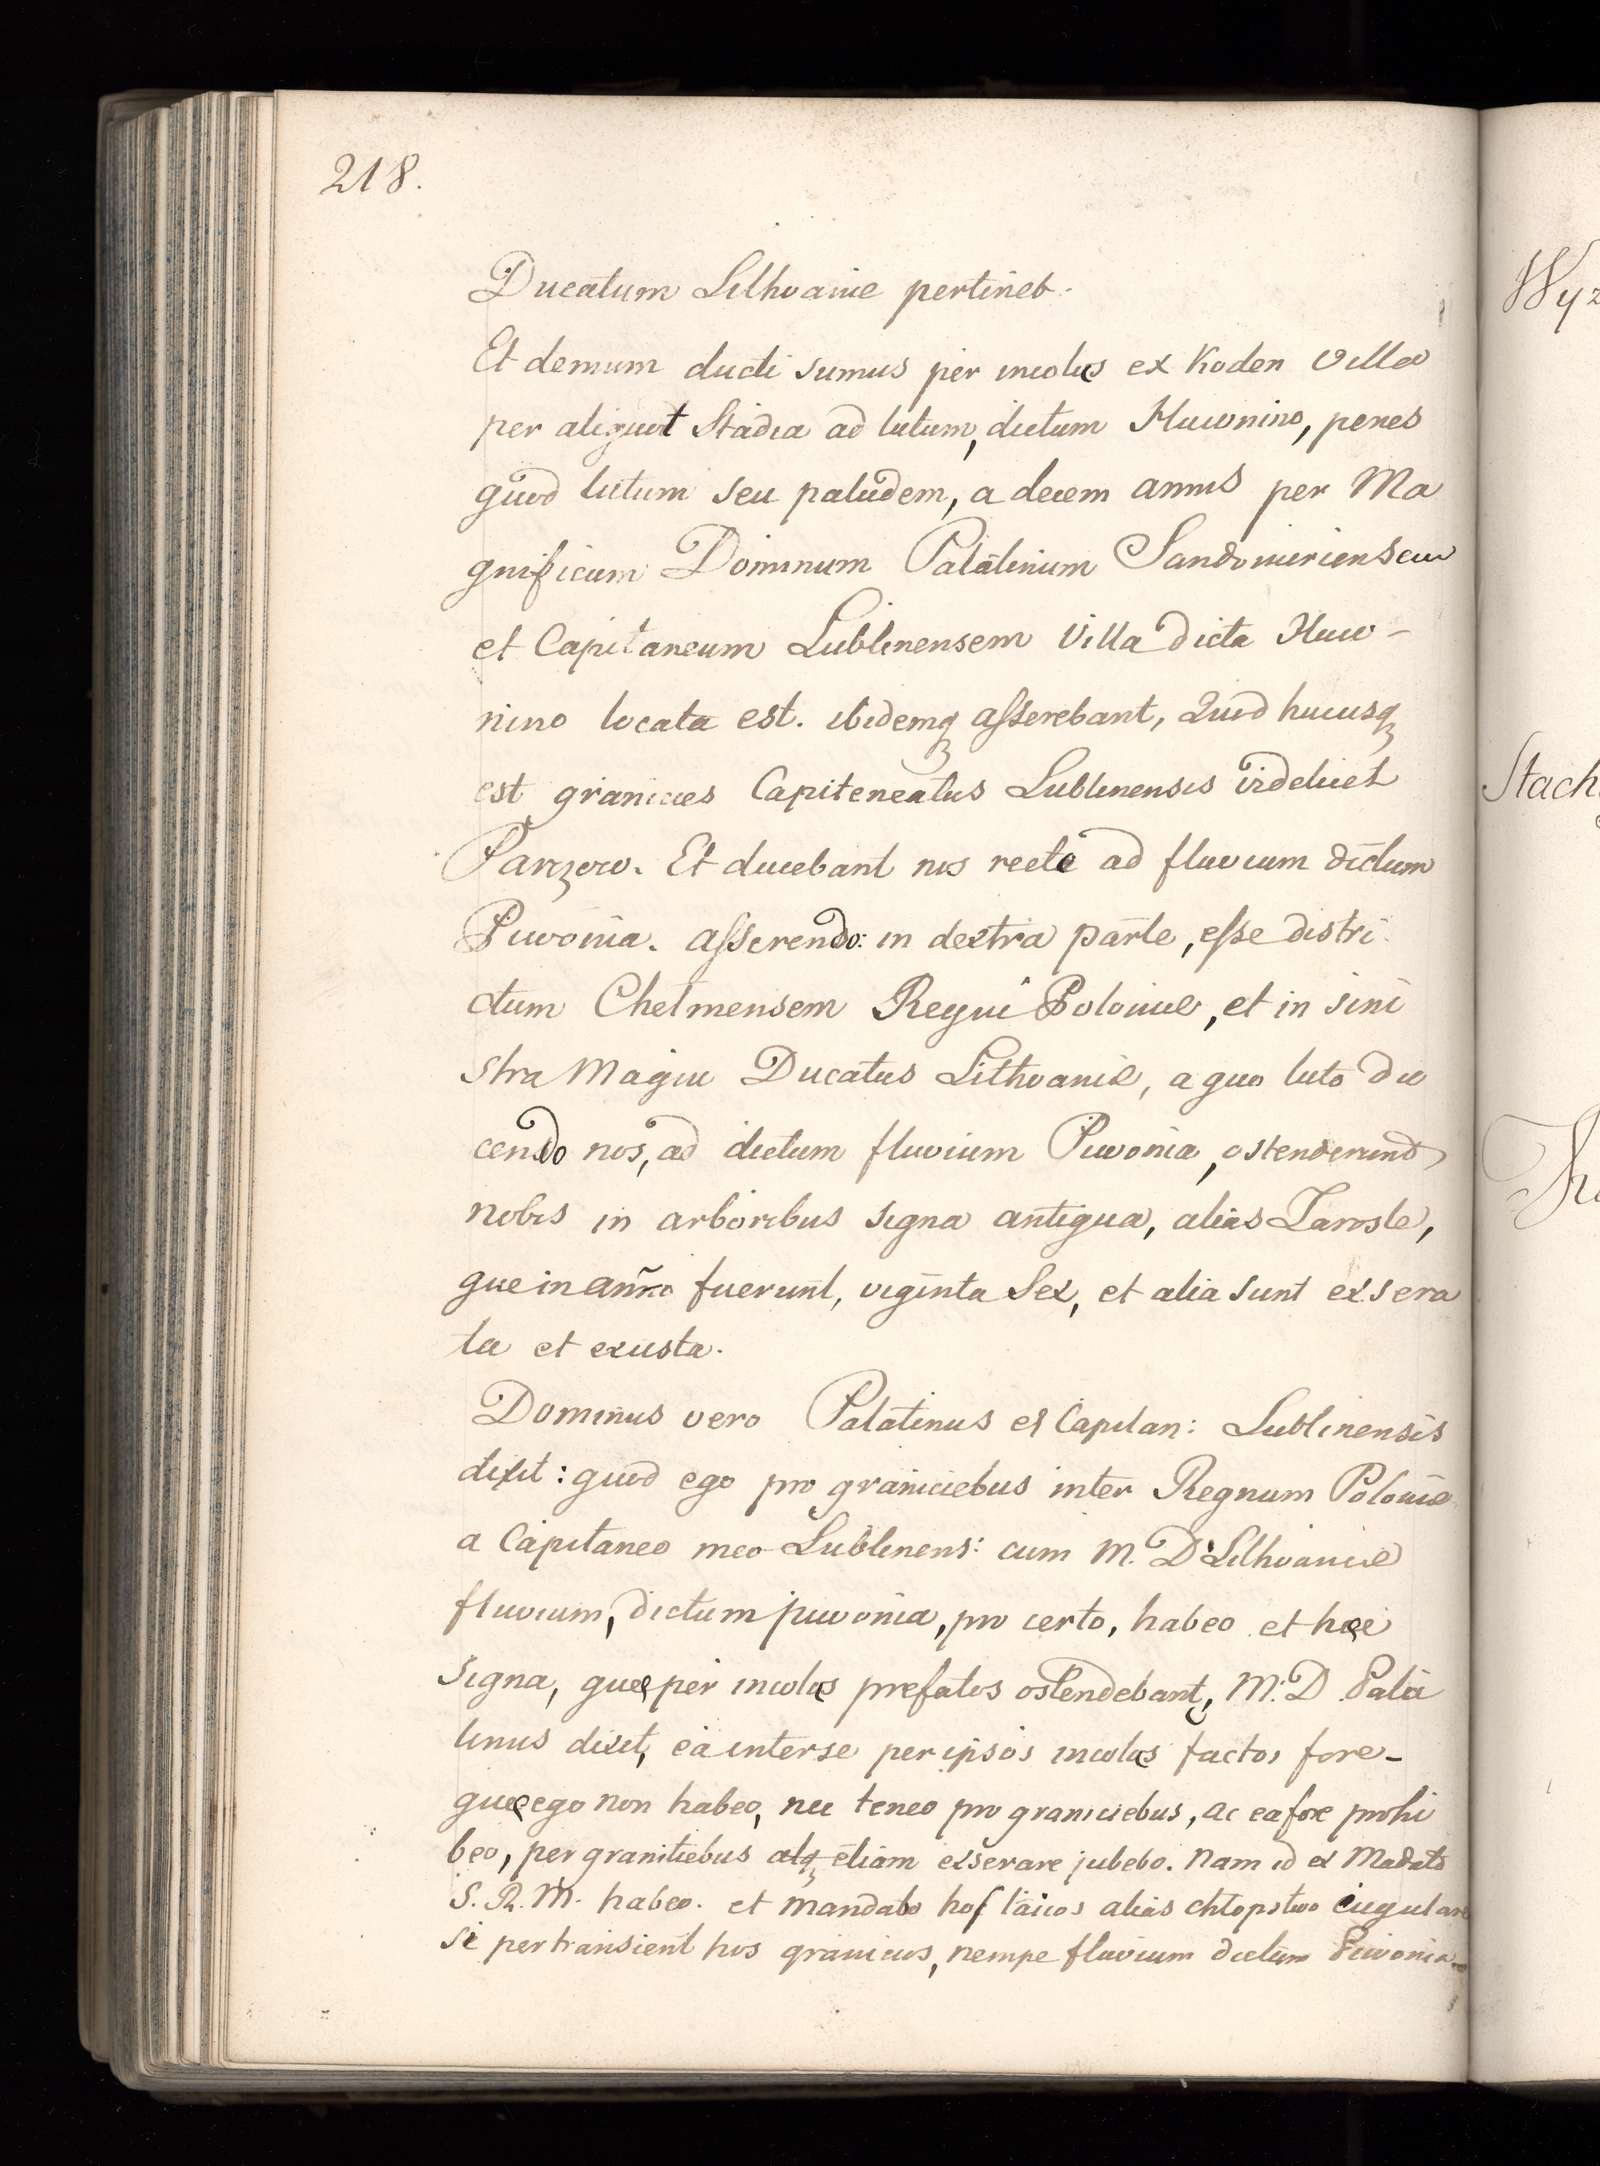 218.
Ducatum Lithvanie pertinet.
Et demum ducti sumus per incolas ex Koden villa
per aliquot Stadia ad lutum, dictum Huwnino, penes
quod lutum seu paludem, a decem annis per Ma
gnificum Dominum Palatinum Sandomiriensem
et Capitaneum Lublinensem Villa dicta Huw-
nino locata est. ibidemq asserebant, Quod hucusq
est granicies Capiteneatus Lublinensis videlicet
Parczow. Et ducebant nos recte ad fluvium dictum
Piwonia. asserendo: in dextra parte, esse distri
ctum Chelmensem Regni Polonie, et in sini
stra Magni Ducatus Lithvanie, a quo luto du
cendo nos, ad dictum fluvium Piwonia, ostenderunt
nobis in arboribus signa antiqua, alias Zarosle,
que in anno fuerunt, viginta Sex, et alia sunt exsera
ta et exusta.
Dominus vero Palatinus et Capitan: Lublinensis
dixit: quod ego pro graniciebus inter Regnum Polonie
a Capitaneo meo Lublinens: cum M. D. Lithvanie
fluvium, dictum piwonia, pro certo, habeo et hee
signa, que per incolas prefatos ostendebant, M. D. Pala
tinus dixit, ea interse per ipsos incolas factos fore-
que ego non habeo, nec teneo pro graniciebus, ac ea fore prohi
beo, per granitiebus alq etiam exserare jubebo. Nam id ex Madato
S. R. M. habeo. et mandabo hos laicos alias chlopstwo iugulare
si pertransient hos granicies, nempe fluvium dictum Piwonia
Wyz
Stach